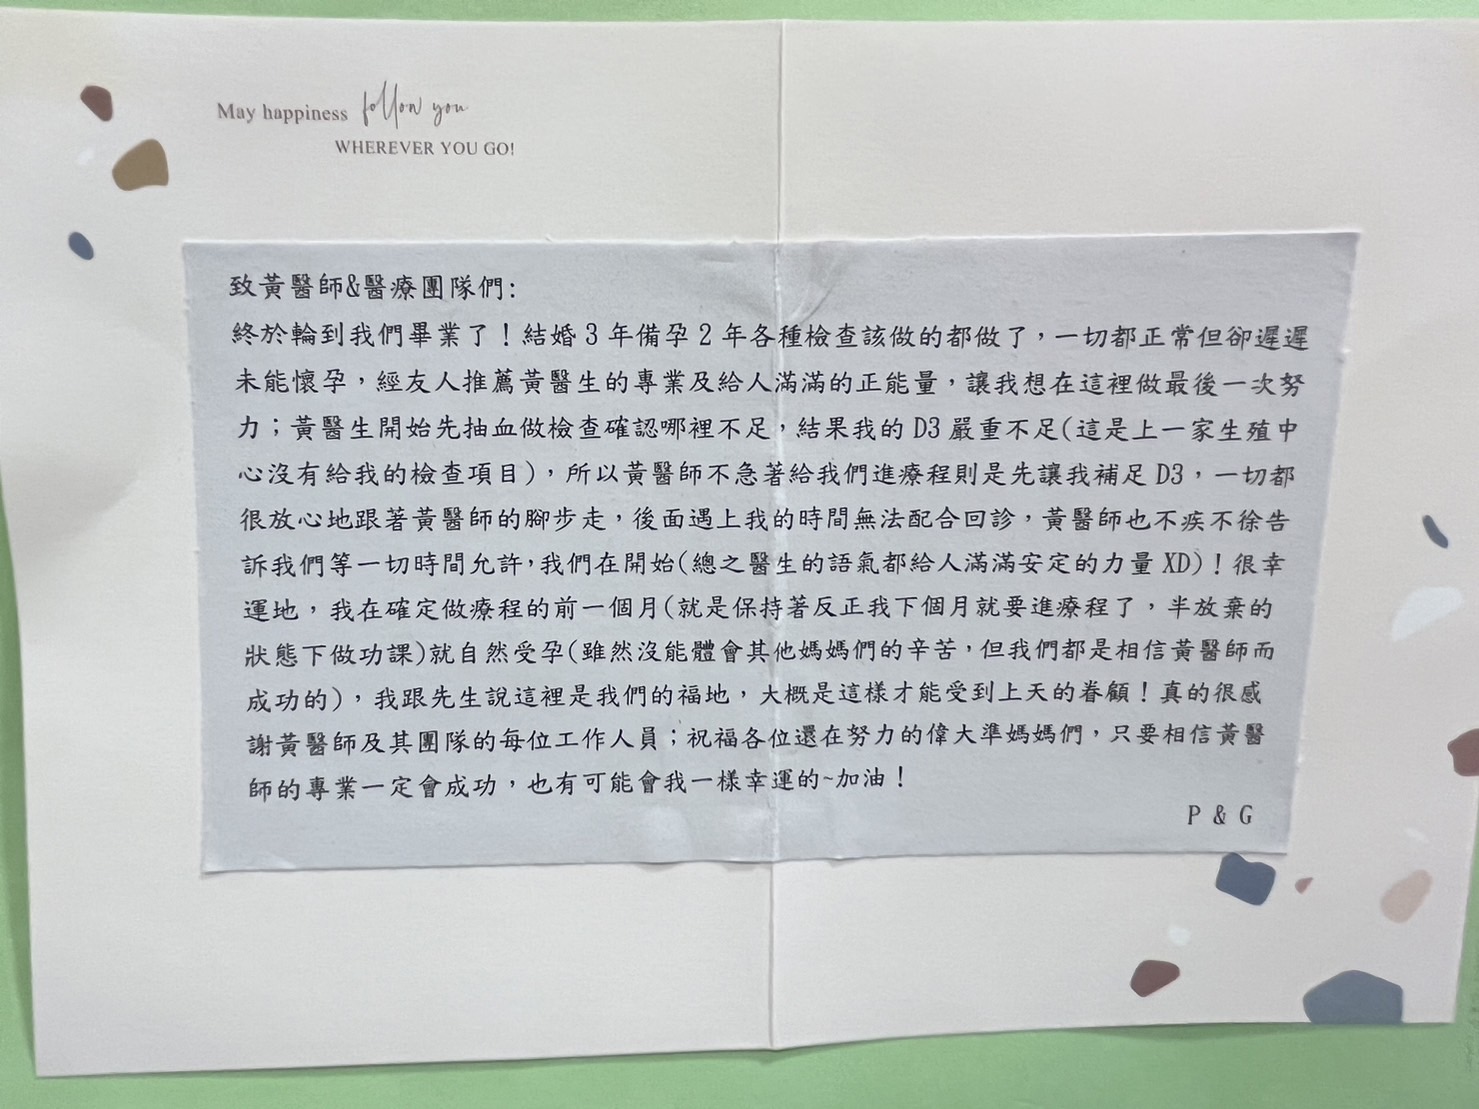 May happiness follow you
WHEREVER YOU GO!
致黃醫師&醫療團隊們:
終於輪到我們畢業了！結婚 3 年備孕 2 年各種檢查該做的都做了，一切都正常但卻遲遲
未能懷孕，經友人推薦黃醫生的專業及給人滿滿的正能量，讓我想在這裡做最後一次努
力；黃醫生開始先抽血做檢查確認哪裡不足，結果我的 D3 嚴重不足(這是上一家生殖中
心沒有給我的檢查項目)，所以黃醫師不急著給我們進療程則是先讓我補足 D3，一切都
很放心地跟著黃醫師的腳步走，後面遇上我的時間無法配合回診，黃醫師也不疾不徐告
訴我們等一切時間允許，我們在開始(總之醫生的語氣都給人滿滿安定的力量 XD)！很幸
運地，我在確定做療程的前一個月(就是保持著反正我下個月就要進療程了，半放棄的
狀態下做功課)就自然受孕(雖然沒能體會其他媽媽們的辛苦，但我們都是相信黃醫師而
成功的)，我跟先生說這裡是我們的福地，大概是這樣才能受到上天的眷顧！真的很感
謝黃醫師及其團隊的每位工作人員；祝福各位還在努力的偉大準媽媽們，只要相信黃醫
師的專業一定會成功，也有可能會我一樣幸運的~加油！
P & G